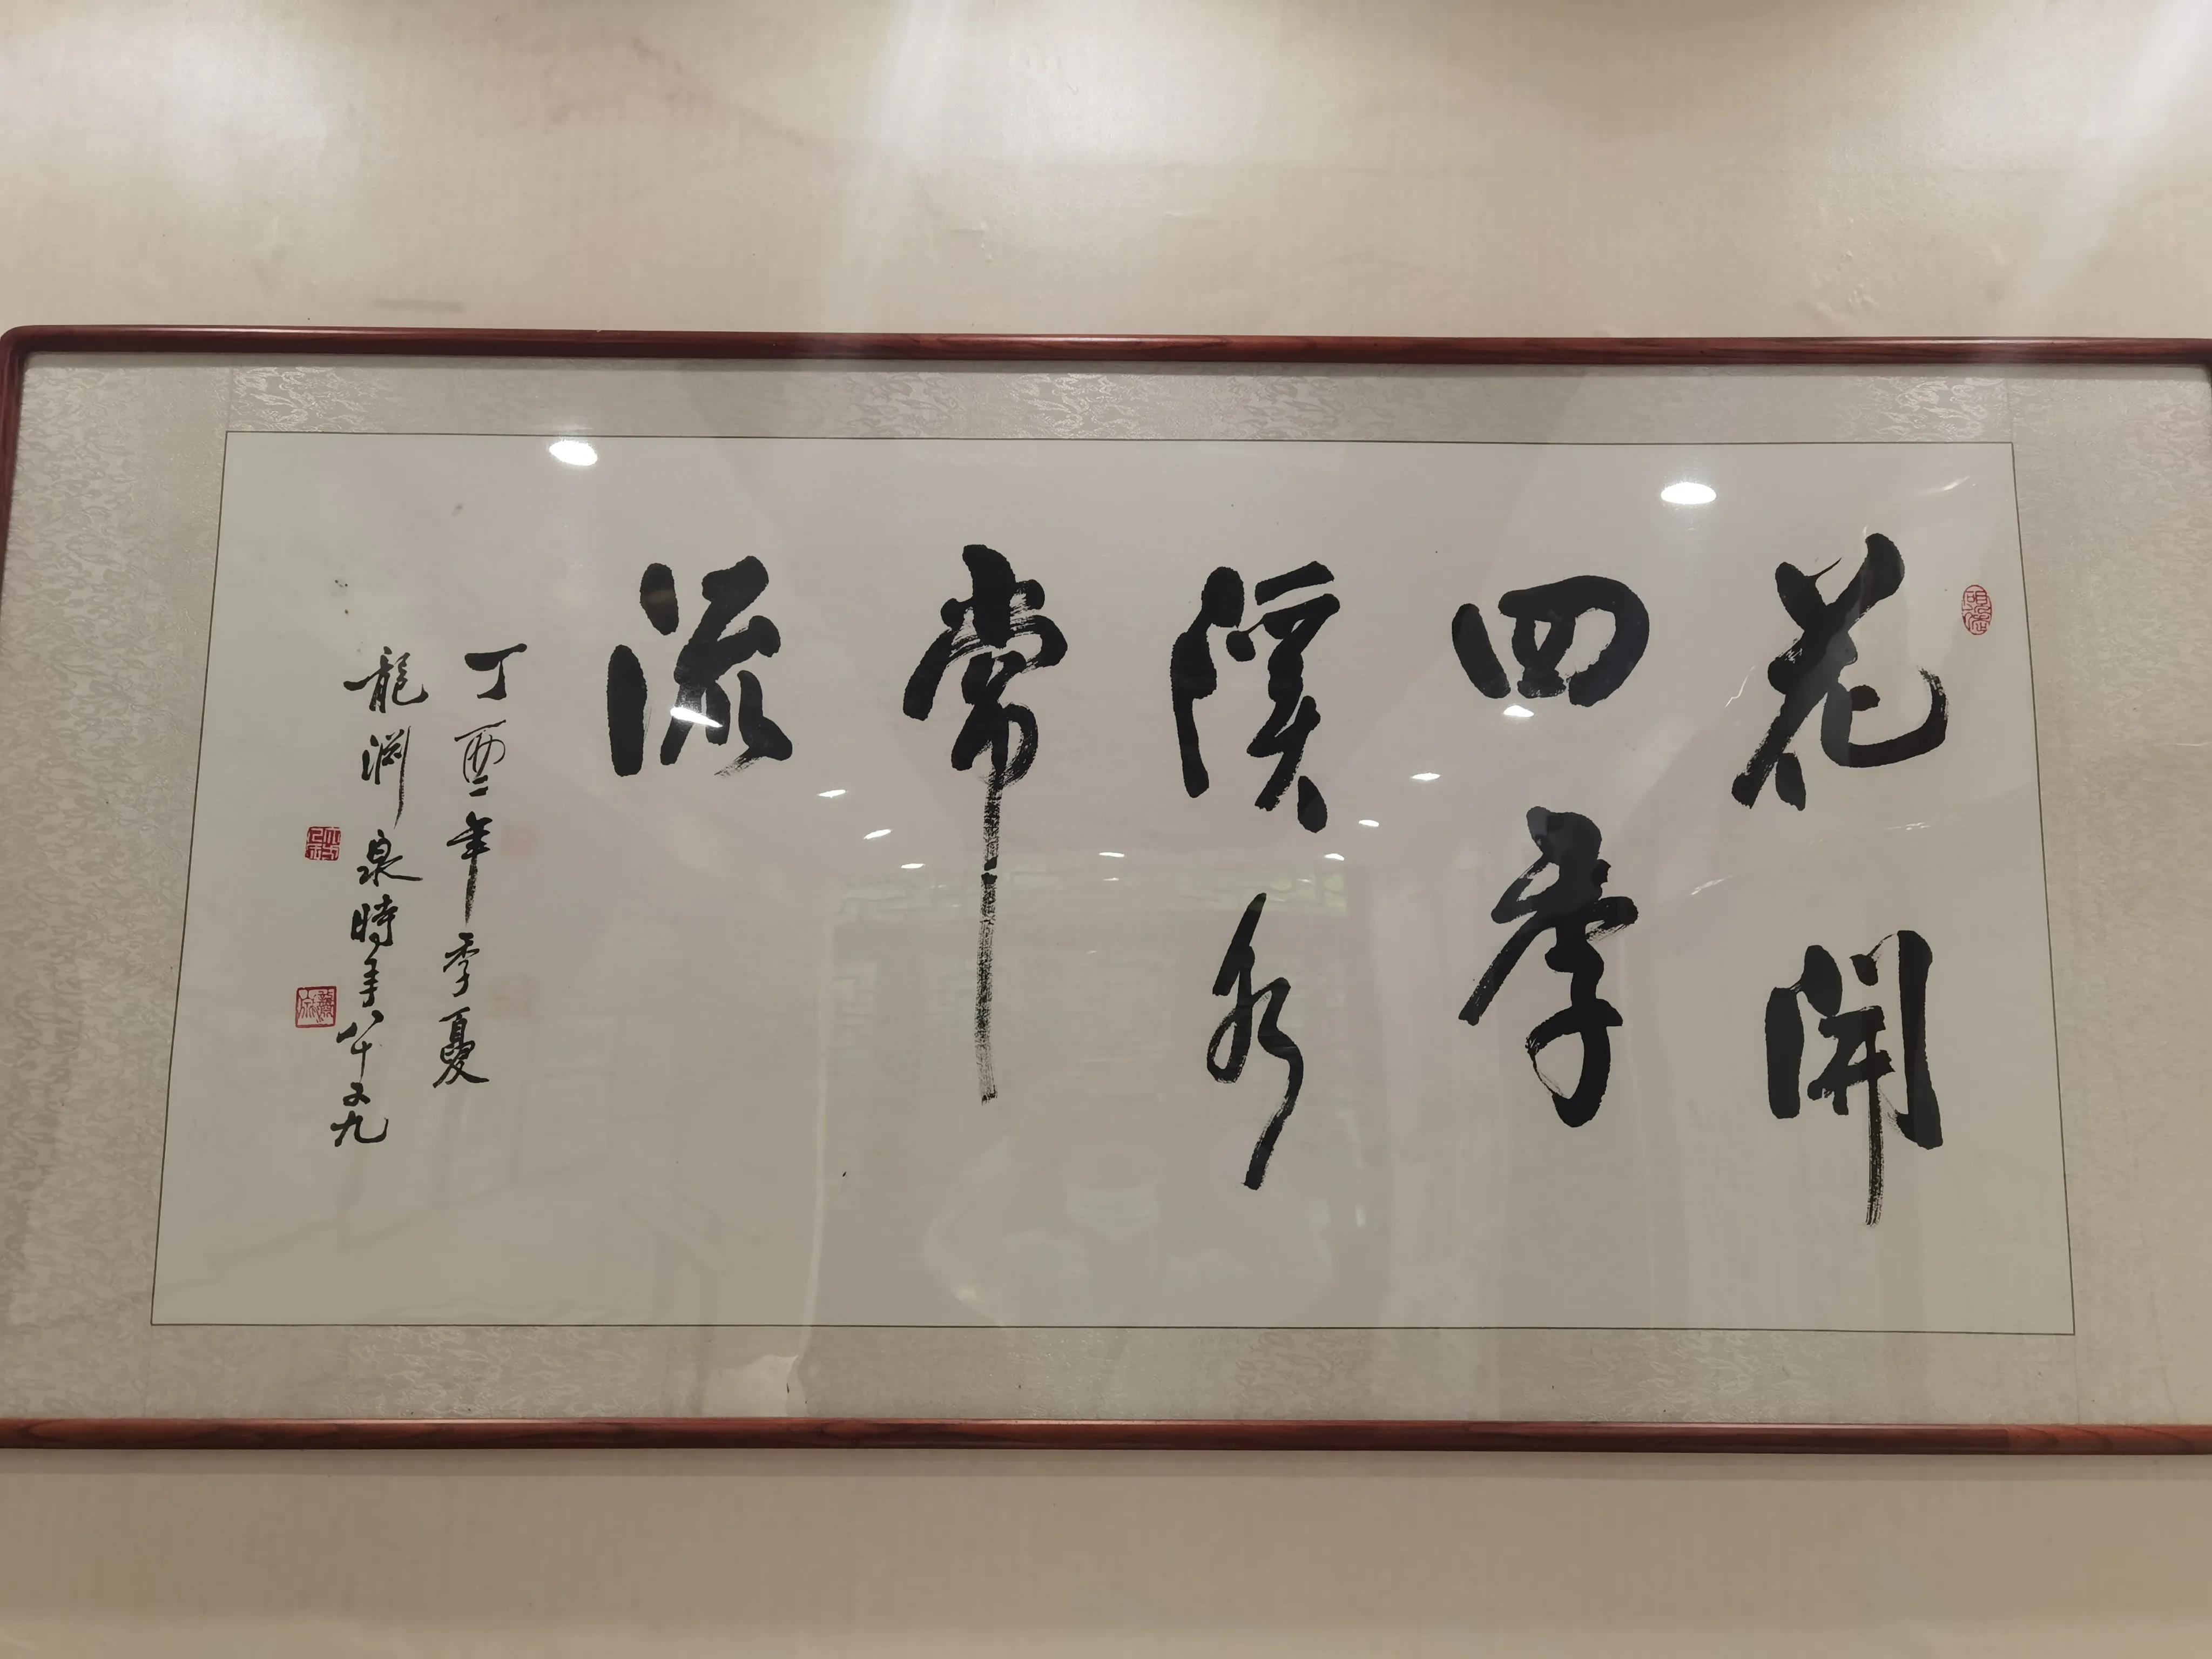 花開
四季
溪水
常
流
丁酉年季夏
龍渊泉時年八十又九